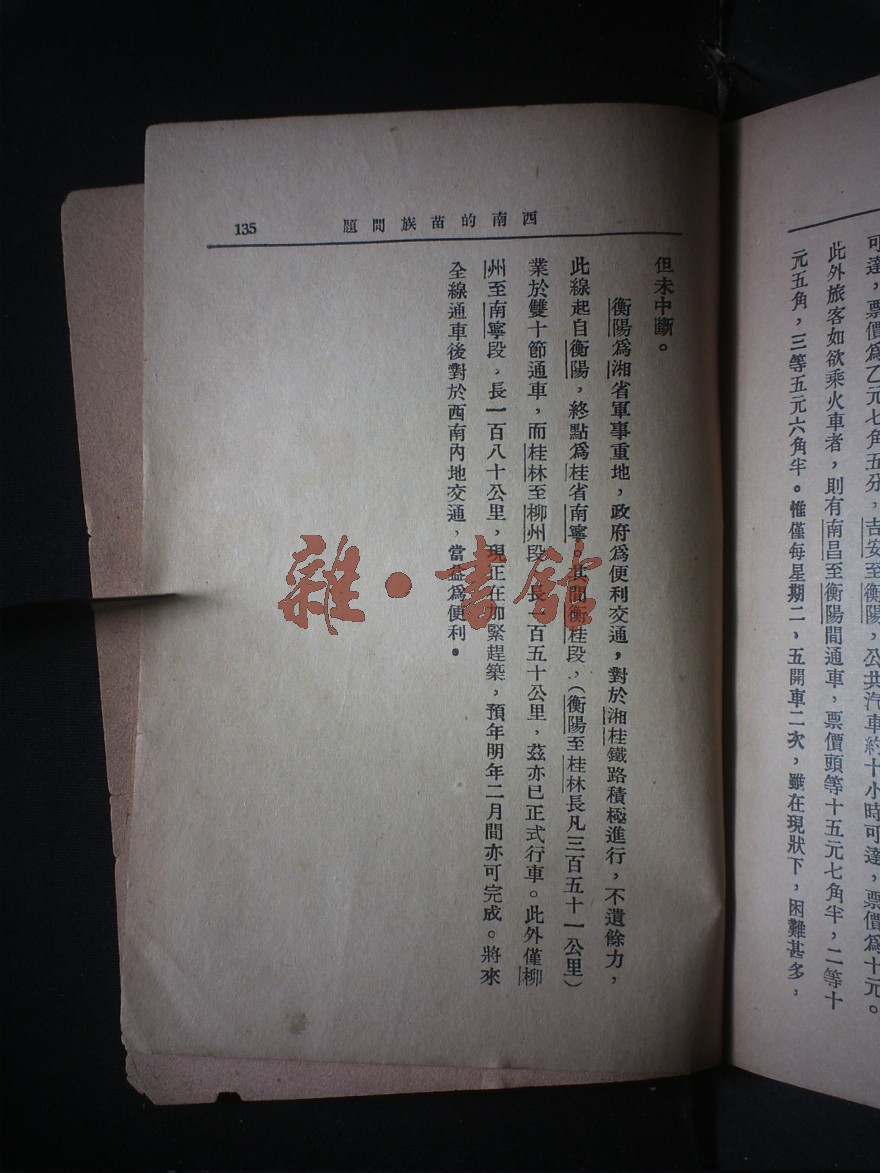 可達，票價為乙元七角五分，吉安至衡陽，公共汽車約十小時可達，票價為十元。
此外旅客如欲乘火車者，則有南昌至衡陽間通車，票價頭等十五元七角半，二等十
元五角，三等五元六角半。惟僅每星期二、五開車二次，雖在現狀下，困難甚多，
西南的苗族問題
135
但未中斷。
衡陽為湘省軍事重地，政府為便利交通，對於湘桂鐵路積極進行，不遺餘力，
此線起自衡陽，終點為桂省南寧。其間衡桂段，（衡陽至桂林長凡三百五十一公里）
業於雙十節通車，而桂林至柳州段，長一百五十公里，茲亦已正式行車。此外僅柳
州至南寧段，長一百八十公里，現正在加緊趕築，預年明年二月間亦可完成。將來
全線通車後對於西南內地交通，當益為便利。
雜·書館